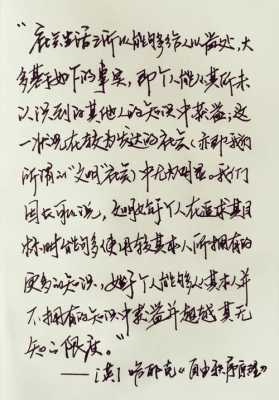 “社会生活之所以能够给人以益处，大
多基于如下的事实，即个人能从其所未
认识到的其他人的知识中获益；这
一状况在较为发达的社会（亦即我们
所谓的“文明”社会）中尤为明显。我们
因此可以说，文明始于个人在追求其目
标时能够使用较其本人所拥有的
更多的知识，始于个人能够从其本人并
不拥有的知识中获益并超越其无
知的限度。”
——［英］哈耶克《自由秩序原理》